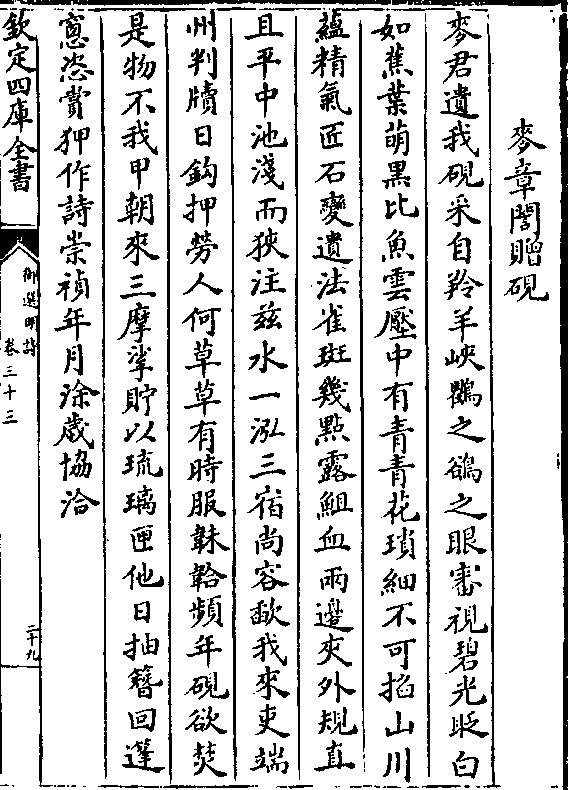 麥章閣贈硯
麥君遺我硯采自羚羊峽鸜之鵒之眼審視碧光眨白
如蕉葉萌黒比魚雲壓中有青青花瑣細不可掐山川
蘊精氣匠石變遺法雀斑幾點露鮰血兩邊夾外規直
且平中池淺而狹注兹水一泓三宿尚容歃我來吏端
州判牘日鈎押勞人何草草有時服韎韐頻年硯欲焚
是物不我甲朝來三摩挲貯以琉璃匣他日抽簪回蓬
窻恣賞狎作詩崇禎年月涂歲協洽
欽定四庫全書
御選明詩
卷三十三
二十九